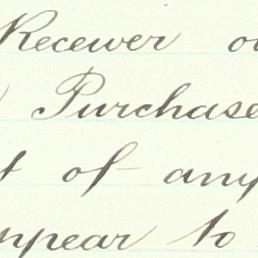 Receiver o
Purchase
t of any
ppear to